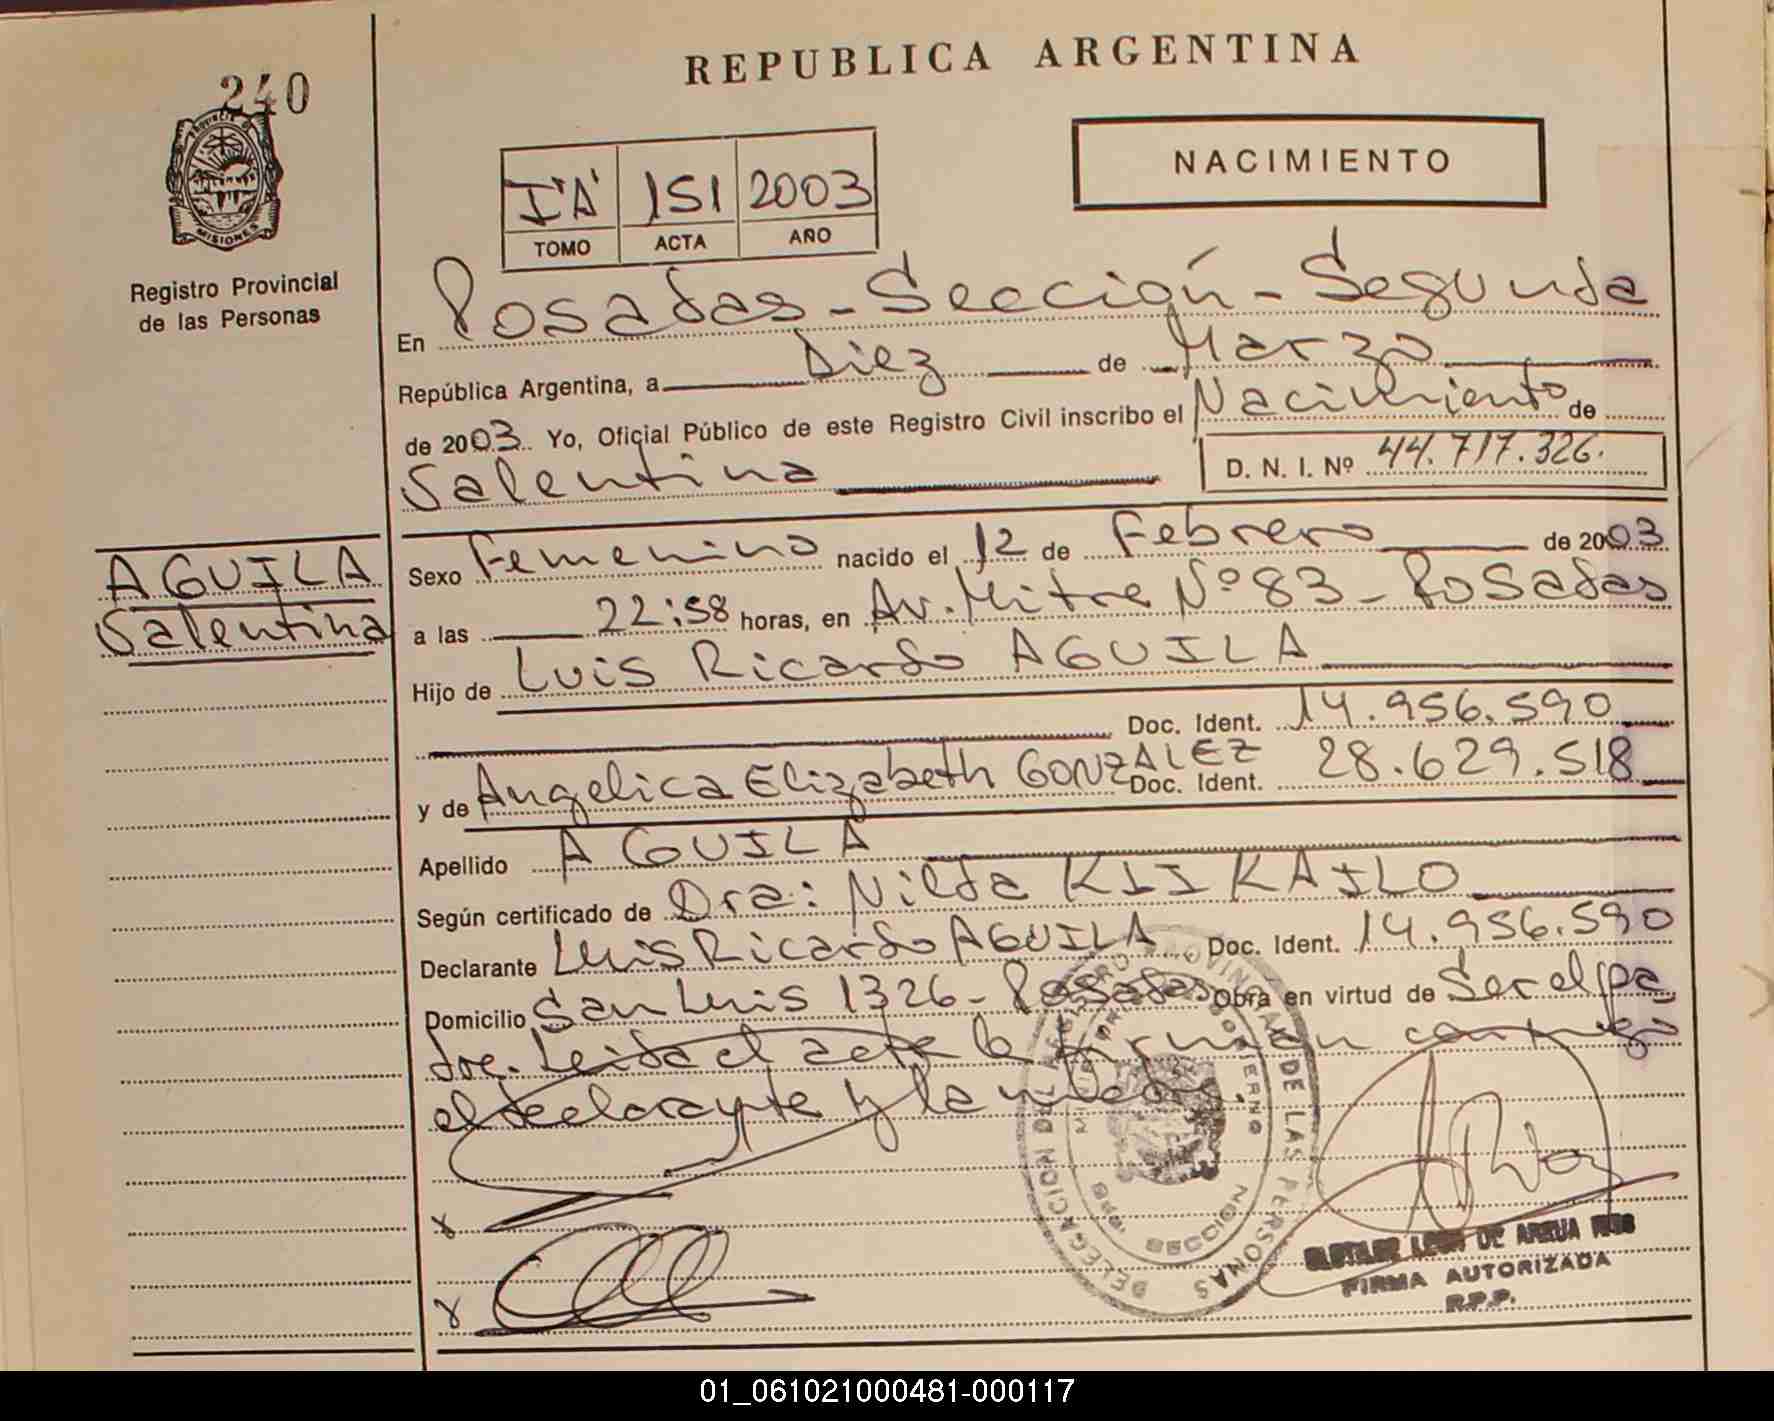 240
REPUBLICA ARGENTINA
NACIMIENTO
PROVINCIA D
MISIONES
Registro Provincial
de las Personas
I"A" 151 2003
TOMO ACTA AÑO
En Posadas - Sección - Segunda
República Argentina, a Diez de Marzo
de 2003 Yo, Oficial Público de este Registro Civil inscribo el Nacimiento de
Salentina D. N. I. Nº 44.717.326.
AGUILA
Salentina
Sexo Femenino nacido el 12 de Febrero de 2003
a las 22:58 horas, en Av. Mitre Nº 83 - Posadas
Hijo de Luis Ricardo AGUILA
Doc. Ident. 14.956.590
y de Angelica Elizabeth GONZALEZ Doc. Ident. 28.629.518
Apellido AGUILA
Según certificado de Dra: Nilda KIIKAILO
Declarante Luis Ricardo AGUILA Doc. Ident. 14.956.590
Domicilio San Luis 1326 - Posadas Obra en virtud de Ser el pa
dre. Leida el acta la firman conmigo
el declarante y la madre.
DELEGACION DEL REGISTRO PROVINCIAL DE LAS PERSONAS
POSADAS
DE ARRUA
FIRMA AUTORIZADA
R.P.P.
01_061021000481-000117